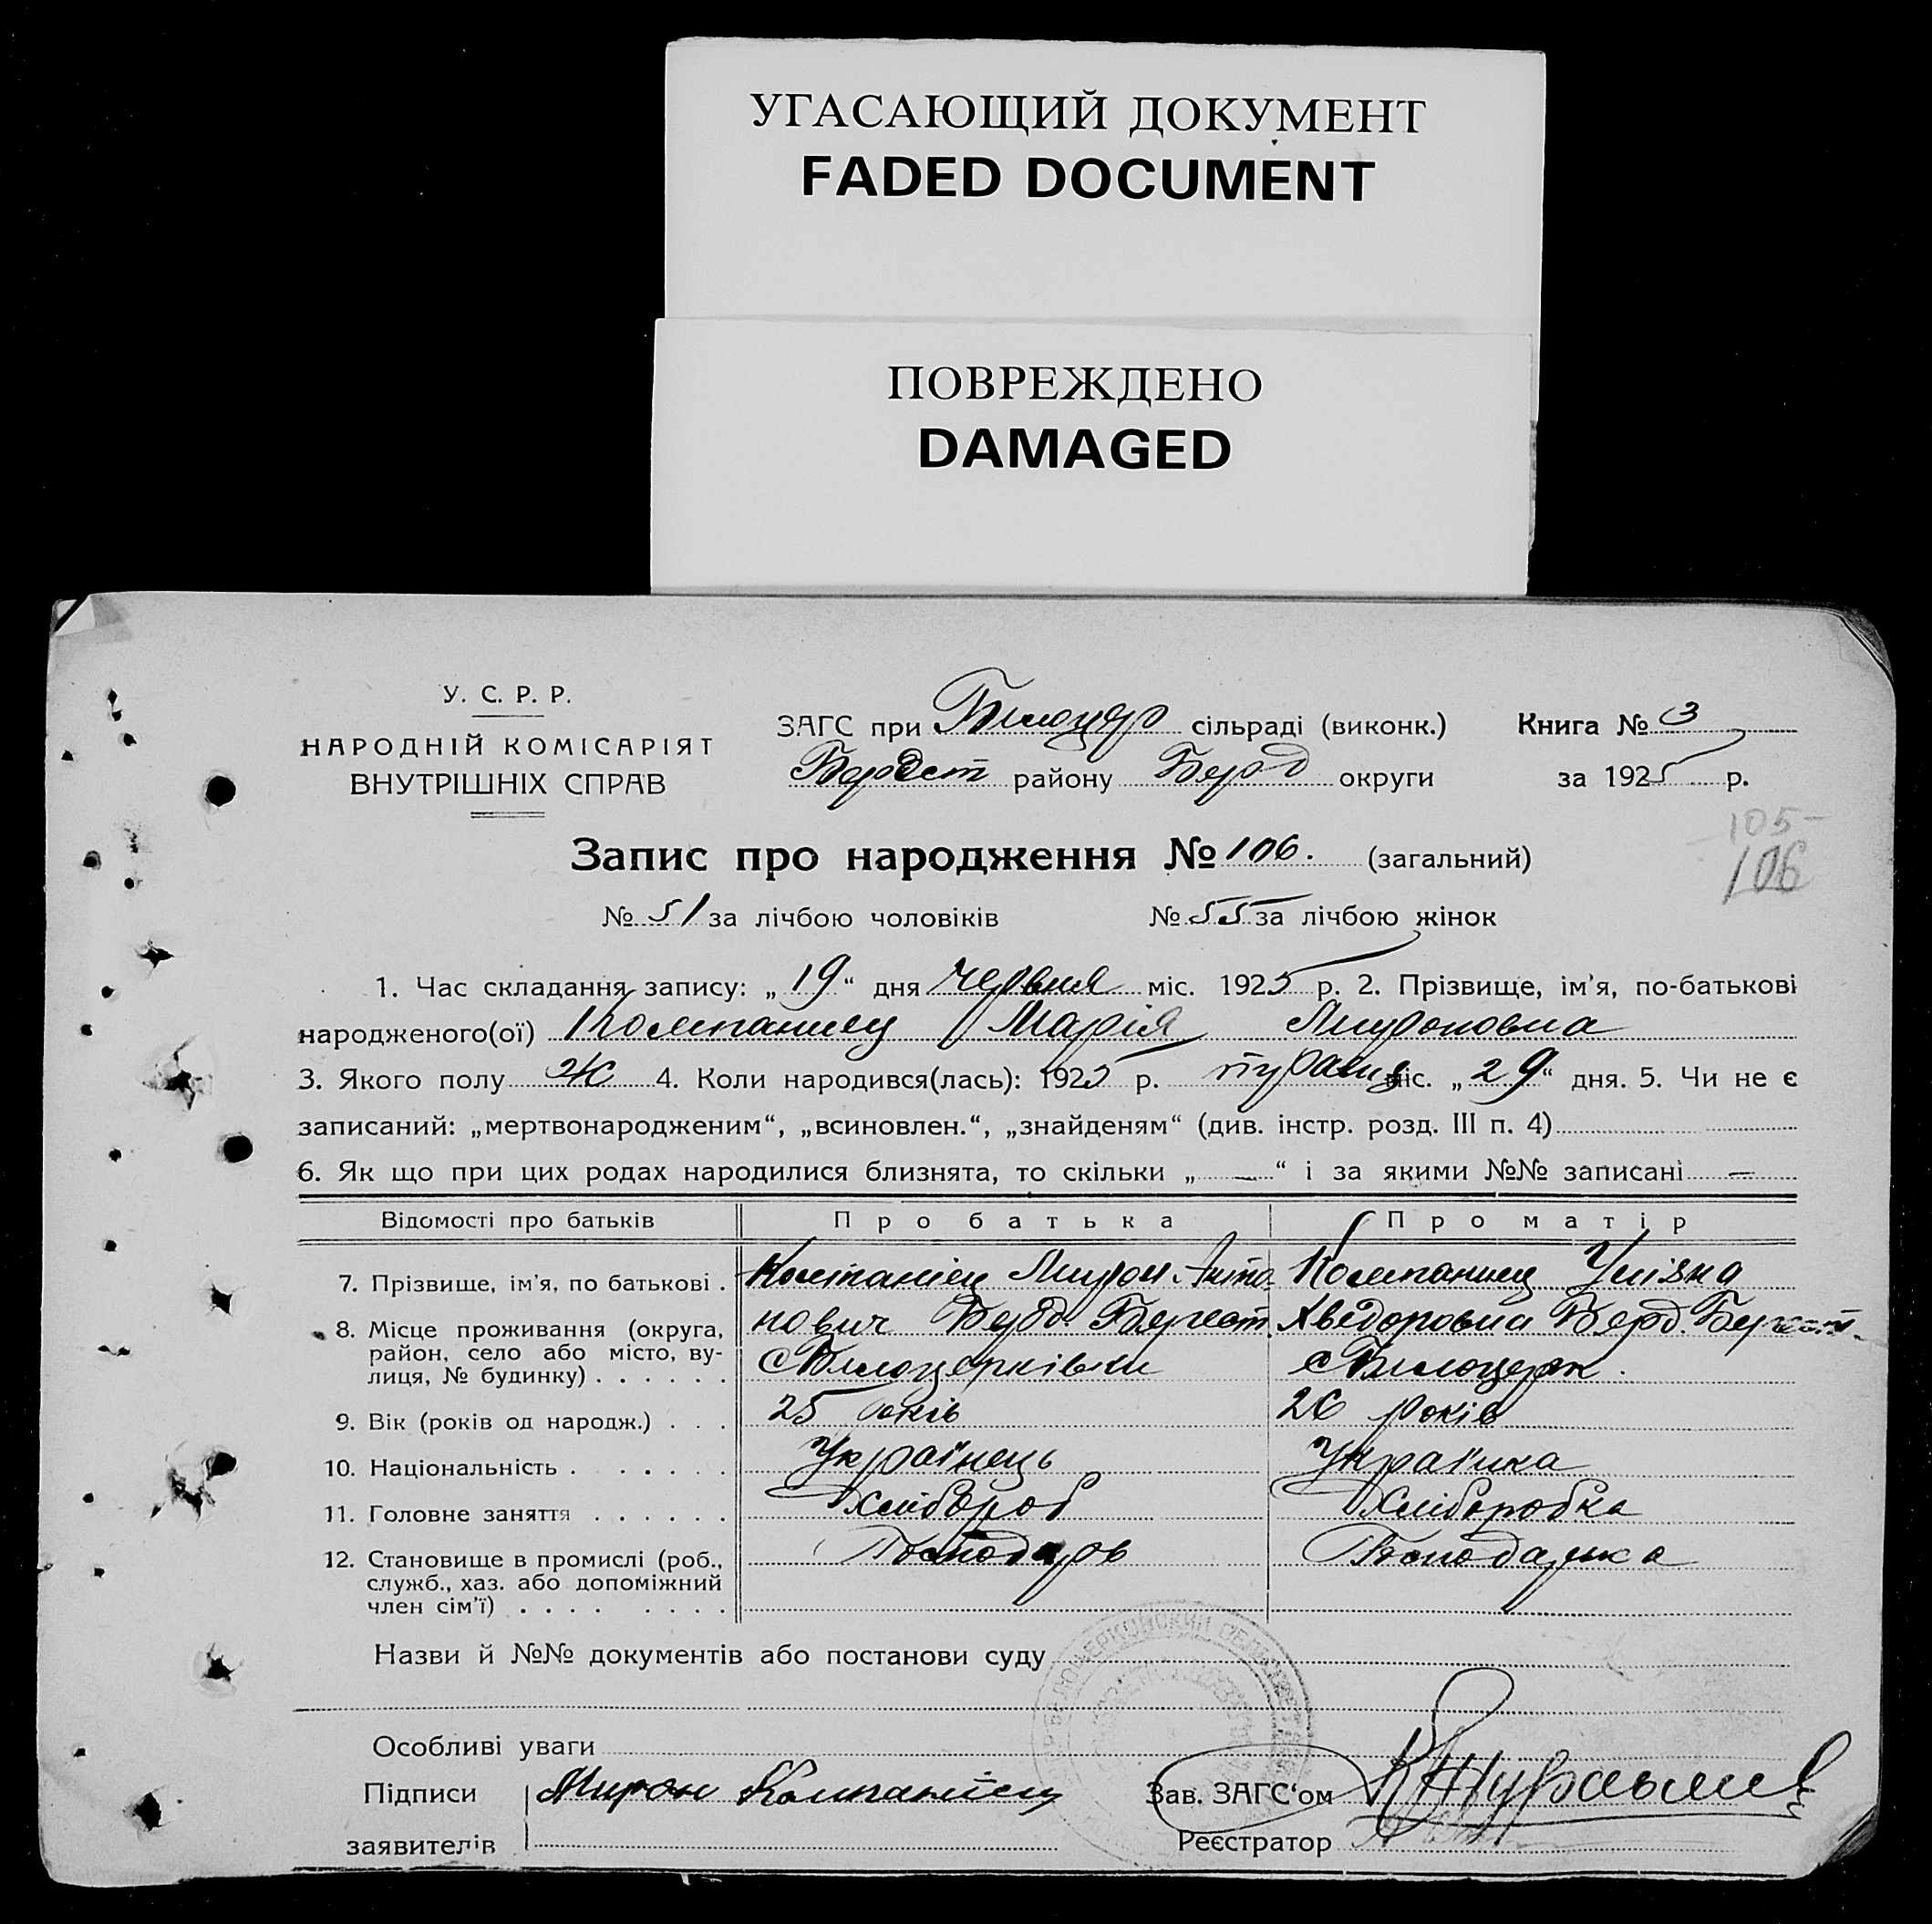 УГАСАЮЩИЙ ДОКУМЕНТ
FADED DOCUMENT
ПОВРЕЖДЕНО
DAMAGED
У. С. Р. Р.
НАРОДНІЙ КОМІСАРІЯТ
ВНУТРІШНІХ СПРАВ
ЗАГС при Билоцер сільраді (виконк.)
району Берд округи
Книга № 3
за 1925 р.
105-
106
Запис про народження № 106. (загальний)
№ 51 за лічбою чоловіків № 55 за лічбою жінок
1. Час складання запису: „ 19 “ дня Червня міс. 1925 р. 2. Прізвище, ім'я, по-батькові
народженого(ої) Компаниец Марія Мироновна
3. Якого полу Ж 4. Коли народився(лась): 1925 р. травня міс. „ 29 “ дня. 5. Чи не є
записаний: „мертвонародженим“, „всиновлен.“, „знайденям“ (див. інстр. розд. III п. 4)
6. Як що при цих родах народилися близнята, то скільки „ — “ і за якими №№ записані —
Відомості про батьків Про батька Про матір
7. Прізвище, ім'я, по батькові . Компаніец Мирон Анто- Компаниец Уляна
8. Місце проживання (округа, нович Берд. Берест. Хведоровна Берд. Берест.
район, село або місто, ву-
лиця, № будинку) . . . . . . с Билоцерківки с Билоцерк.
9. Вік (років од народж.) . . . 25 років 26 років
10. Національність . . . . . . Українець Українка
11. Головне заняття . . . . . . Хлібороб Хліборобка
12. Становище в промислі (роб., Господарь Господарка
служб., хаз. або допоміжний
член сім'ї) . . . . . . . .
Назви й №№ документів або постанови суду
Особливі уваги
Підписи Мирон Компаніец Зав. ЗАГС'ом
заявителів Реєстратор